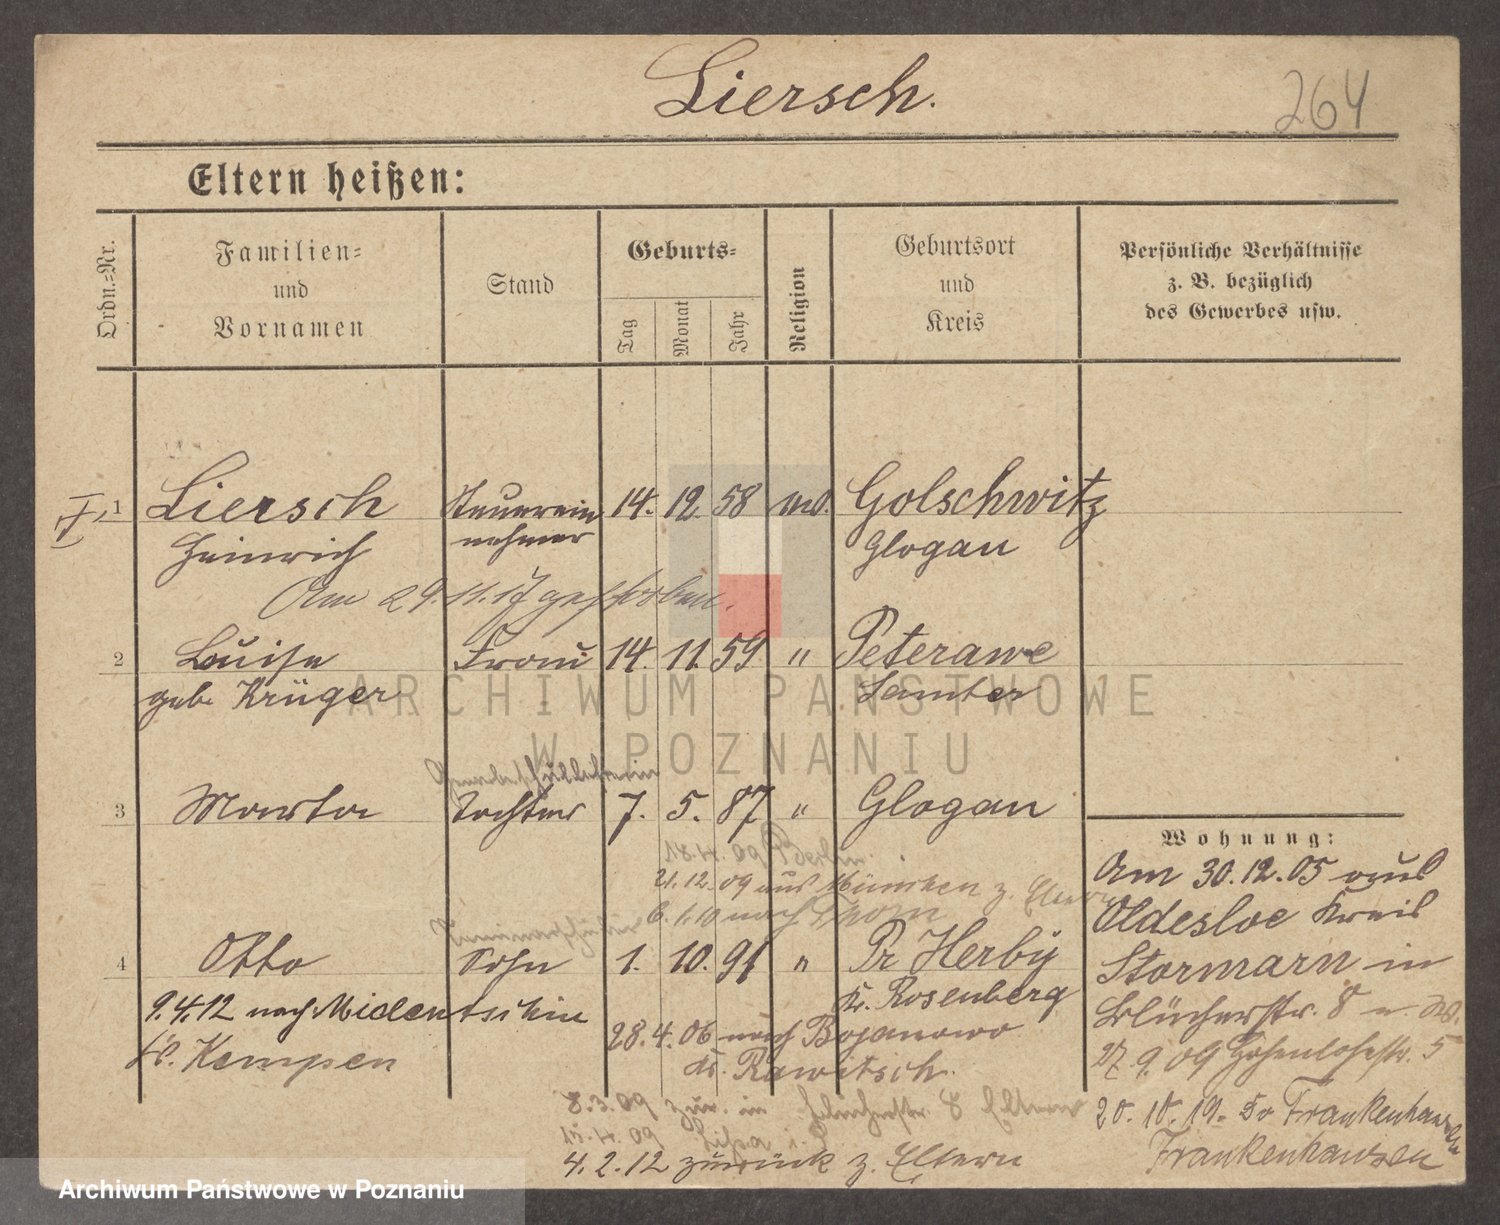 Liersch.
264
Eltern heißen:
Ordn.=Nr.
Familien=
und
Vornamen
Stand
Geburts=
Tag
Monat
Jahr
Religion
Geburtsort
und
Kreis
Persönliche Verhältnisse
z. B. bezüglich
des Gewerbes usw.
1 Liersch Steuerein 14. 12. 58 Golschwitz
Heinrich nehmer Glogau
Am 29.11.17 gestorben.
2 Luise Frau 14. 11. 59 " Peterawe
geb. Krüger Samter
ARCHIWUM PAŃSTWOWE
W POZNANIU
3 Marta Tochter 7. 5. 87 " Glogau
18.4.09 Berlin.
21.12.09 aus München z. Eltern
6.1.10 nach Thorn
4 Otto Sohn 1. 10. 91 " Pr Herby
Kr. Rosenberg
9.4.12 nach
Kr. Kempen
28.4.06 nach Bojanowo
Kr. Rawitsch.
8.3.09 zur. in 8 Eltern
15.4.09 Lissa i. P.
4.2.12 zurück z. Eltern
Wohnung:
Am 30.12.05 aus
Oldesloe Kreis
Stormarn in
Blücherstr. 8
27.9.09 Hohenlohestr. 5
20.10.19. Frankenhausen
Frankenhausen
Archiwum Państwowe w Poznaniu